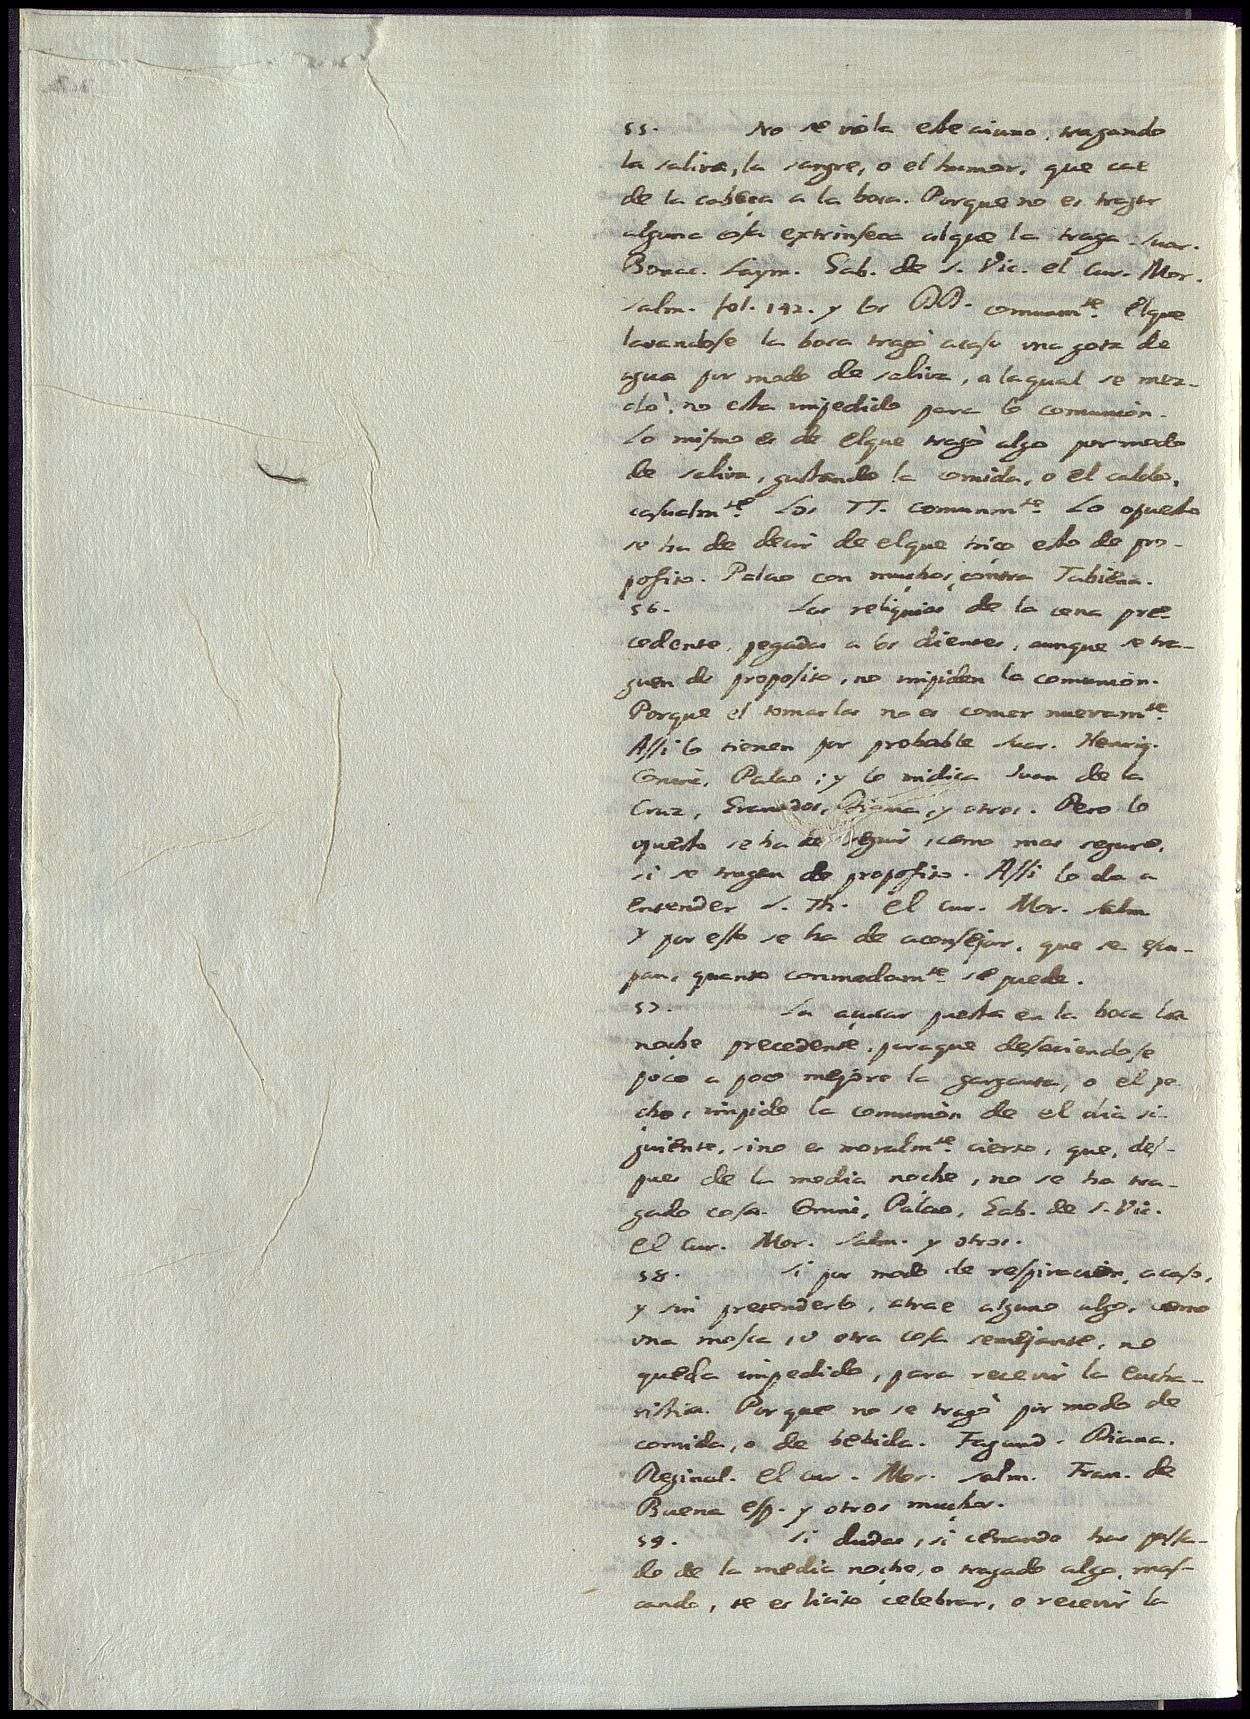 55. No se viola este aiuno, tragando
la saliva, la sangre, o el humor, que cae
de la cabeça a la boca. Porque no es tragar
alguna cosa extrinseca al que la traga. Suar.
Bonac. Laym. Gab. de S. Vic. el Cur. Mor.
Salm. fol. 142. y los DD. comunmte. El que
lavandose la boca tragò acaso una gota de
agua por modo de saliva, a la qual se mez-
clò, no esta impedido para la comunion.
Lo mismo es de el que tragò algo por modo
de saliva, gustando la comida, o el caldo,
casualmte. Los TT. comunmte. Lo opuesto
se ha de decir de el que hiço esto de pro-
posito. Palao con muchos, contra Tabiena.
56. Las reliquias de la cena pre-
cedente, pegadas a los dientes, aunque se tra-
guen de proposito, no impiden la comunion.
Porque el tomarlas no es comer nuevamte.
Assi lo tienen por probable Suar. Henriq.
Coninc, Palao; y lo indica Juan de la
Cruz, Granados, Diana, y otros. Pero lo
opuesto se ha de seguir, como mas seguro,
si se tragan de proposito. Assi lo da a
entender S. Th. el Cur. Mor. Salm
y por esto se ha de aconsejar, que se escu-
pan, quanto commodamte se puede.
57. La açucar puesta en la boca la
noche precedente, paraque desaciendose
poco a poco mejore la garganta, o el pe
cho, impide la comunion de el dia si-
guiente, sino es moralmte. cierto, que, des-
pues de la media noche, no se ha tra-
gado cosa. Coninc, Palao, Gab. de S. Vic.
el Cur. Mor. Salm. y otros.
58. Si por modo de respiracion, acaso,
y sin pretenderlo, atrae alguno algo, como
una mosca, u otra cosa semejante, no
queda impedido, para recevir la Eucha-
ristia. Porque no se tragò por modo de
comida, o de bebida. Fagund. Diana.
Reginal. el Cur. Mor. Salm. Fran. de
Buena esp. y otros muchos.
59. Si dudas, si cenando has passa-
do de la media noche, o tragado algo, mas-
cando, te es licito celebrar, o recevir la